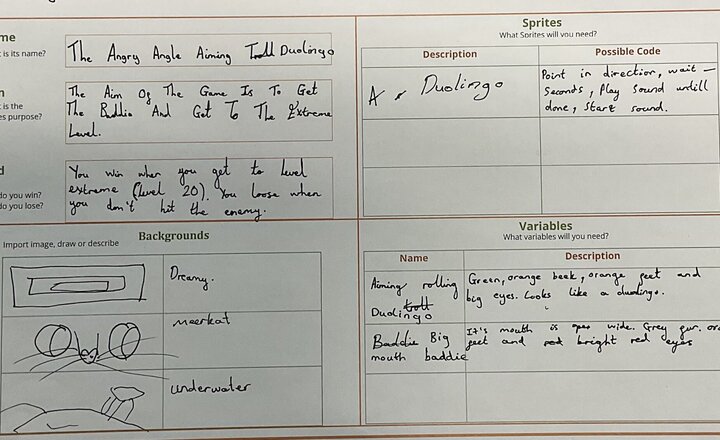 me
t is its name?
The Angry Angle Aiming Troll Duolingo
n
t is the
es purpose?
The Aim Of The Game Is To Get
The Baddie And Get To The Extreme
Level.
d
do you win?
do you lose?
You win when you get to level
extreme (level 20). You loose when
you don't hit the enemy.
Backgrounds
Import image, draw or describe
Dreamy.
meerkat
underwater
Sprites
What Sprites will you need?
Description
Possible Code
A Duolingo
Point in direction, wait –
seconds, Play sound untill
done, start sound.
Variables
What variables will you need?
Name
Description
Aiming rolling
troll
Duolingo
Green, orange beek, orange feet and
big eyes. Looks like a duolingo.
Baddie Big
mouth baddie
It's mouth is open wide. Grey fur. or
feet and bright red eyes